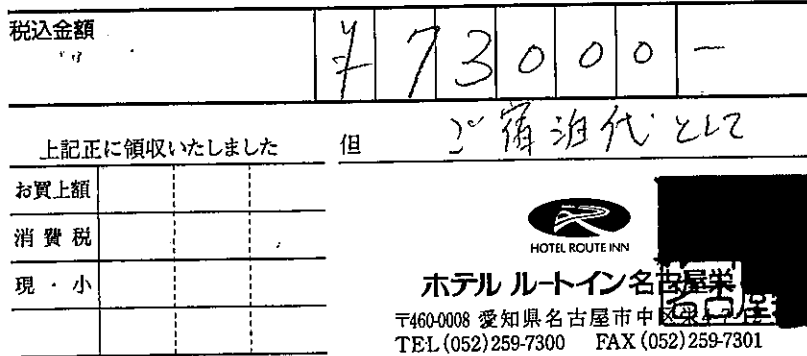 税込金額
¥73000-
上記正に領収いたしました 但 ご宿泊代として
お買上額
消費税
現・小
HOTEL ROUTE INN
ホテル ルートイン名古屋栄
〒460-0008 愛知県名古屋市中区
TEL(052)259-7300 FAX(052)259-7301